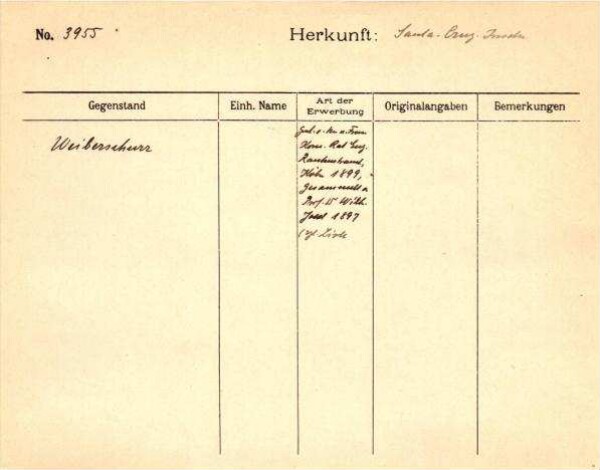 No. 3955
Herkunft: Santa-Cruz-Inseln
Gegenstand
Einh. Name
Art der
Erwerbung
Originalangaben
Bemerkungen
Weiberschurz
Kom. Rat Eug.
Rautenstrauch,
Köln 1899,
gesammelt v.
Prof. Dr Wilh.
Joest 1897